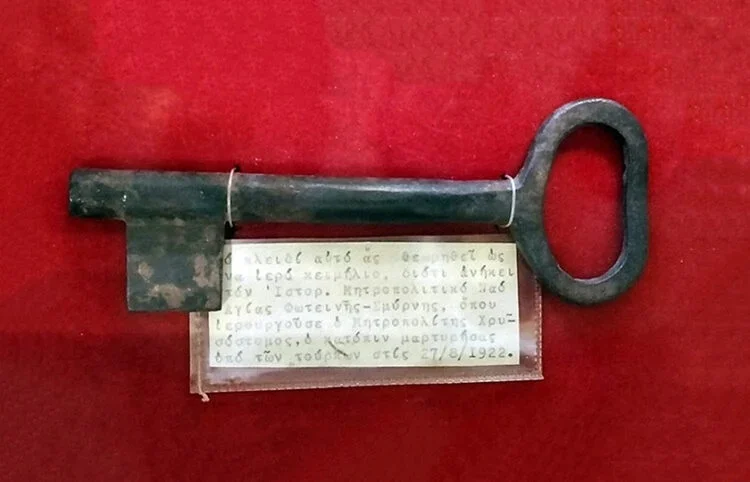 κλειδί αὐτό ἄς θεωρηθεῖ ὡς
να ἱερό κειμήλιο, διότι ἀνήκει
τόν Ἱστορ. Μητροπολιτικό Ναό
Ἁγίας Φωτεινῆς-Σμύρνης, ὅπου
ἱερουργοῦσε ὁ Μητροπολίτης Χρυ-
σόστομος, ὁ κατόπιν μαρτυρήσας
ὑπό τῶν τούρκων στίς 27/8/1922.